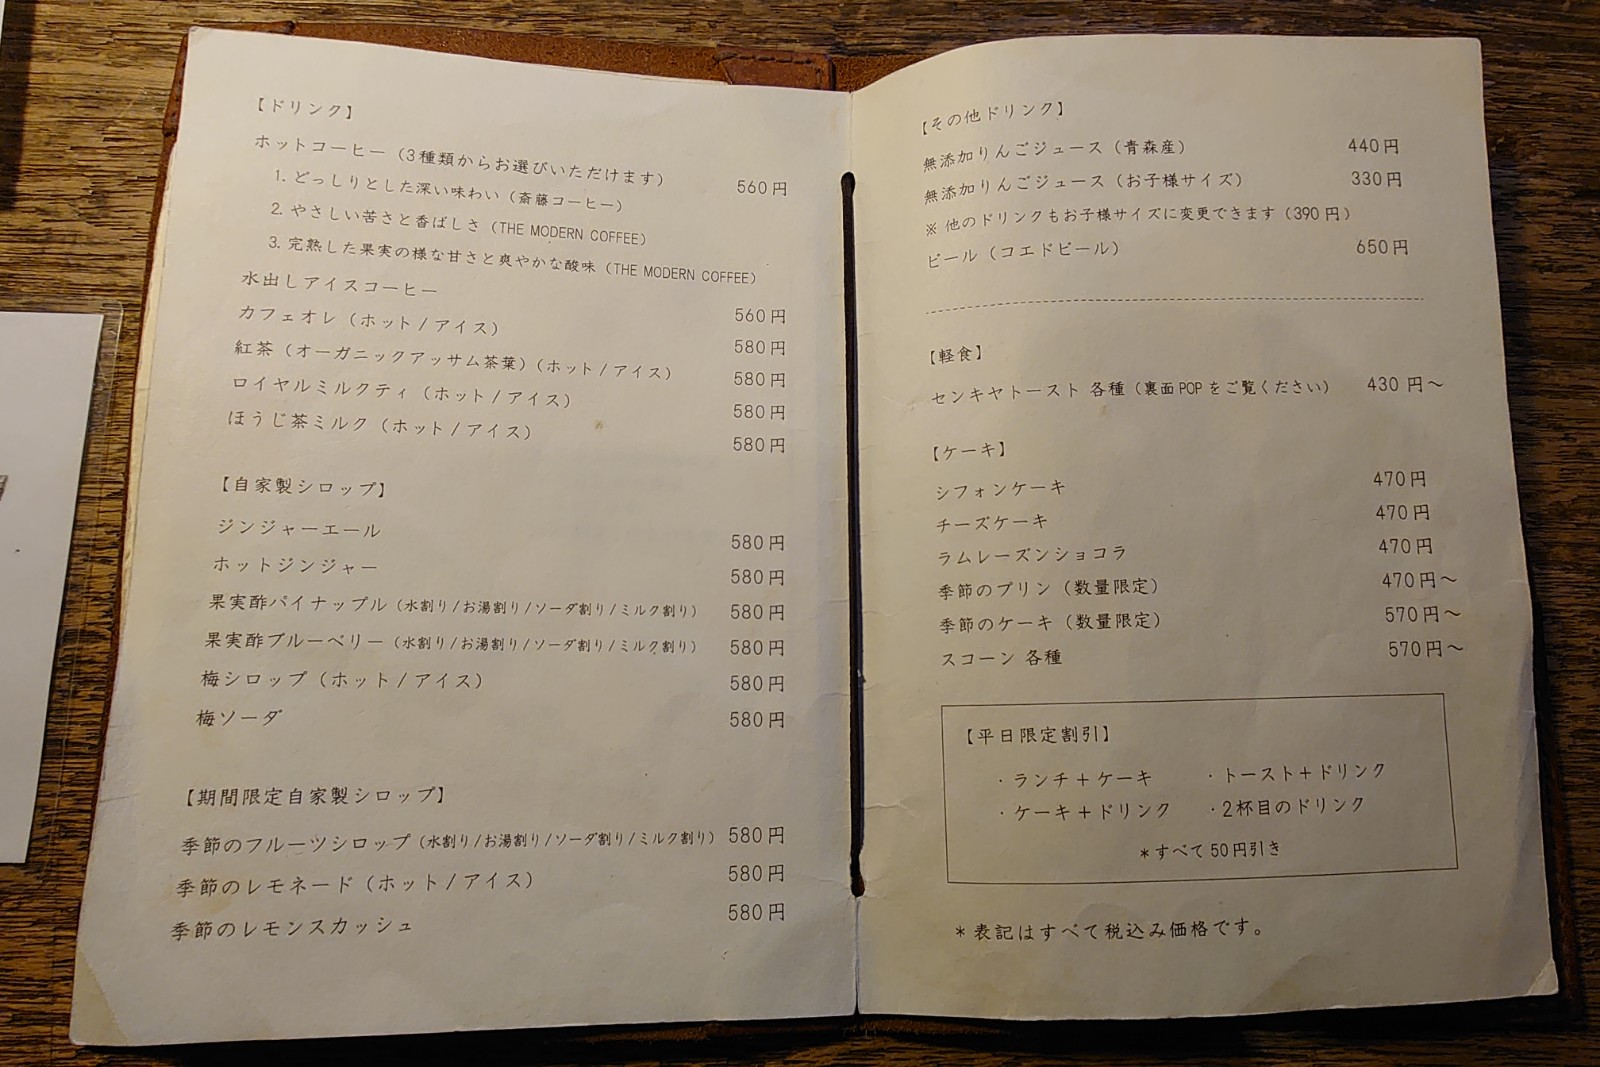 【ドリンク】
ホットコーヒー（3種類からお選びいただけます） 560円
1. どっしりとした深い味わい（斎藤コーヒー）
2. やさしい苦さと香ばしさ（THE MODERN COFFEE）
3. 完熟した果実の様な甘さと爽やかな酸味（THE MODERN COFFEE）
水出しアイスコーヒー 560円
カフェオレ（ホット/アイス） 580円
紅茶（オーガニックアッサム茶葉）（ホット/アイス） 580円
ロイヤルミルクティ（ホット/アイス） 580円
ほうじ茶ミルク（ホット/アイス） 580円
【自家製シロップ】
ジンジャーエール 580円
ホットジンジャー 580円
果実酢パイナップル（水割り/お湯割り/ソーダ割り/ミルク割り） 580円
果実酢ブルーベリー（水割り/お湯割り/ソーダ割り/ミルク割り） 580円
梅シロップ（ホット/アイス） 580円
梅ソーダ 580円
【期間限定自家製シロップ】
季節のフルーツシロップ（水割り/お湯割り/ソーダ割り/ミルク割り） 580円
季節のレモネード（ホット/アイス） 580円
季節のレモンスカッシュ 580円
【その他ドリンク】
無添加りんごジュース（青森産） 440円
無添加りんごジュース（お子様サイズ） 330円
※他のドリンクもお子様サイズに変更できます（390円）
ビール（コエドビール） 650円
【軽食】
センキヤトースト 各種（裏面POPをご覧ください） 430円～
【ケーキ】
シフォンケーキ 470円
チーズケーキ 470円
ラムレーズンショコラ 470円
季節のプリン（数量限定） 470円～
季節のケーキ（数量限定） 570円～
スコーン 各種 570円～
【平日限定割引】
・ランチ＋ケーキ ・トースト＋ドリンク
・ケーキ＋ドリンク ・2杯目のドリンク
＊すべて50円引き
＊表記はすべて税込み価格です。